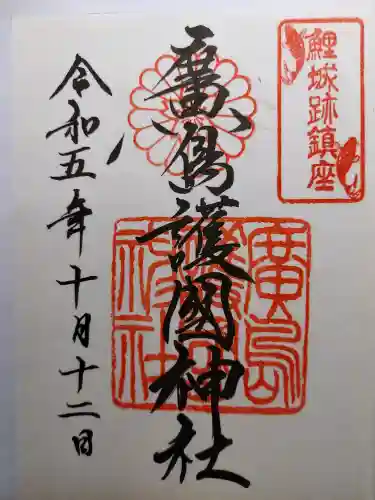 鯉城跡鎮座
廣島護國神社
廣島護國神社
令和五年十月十二日